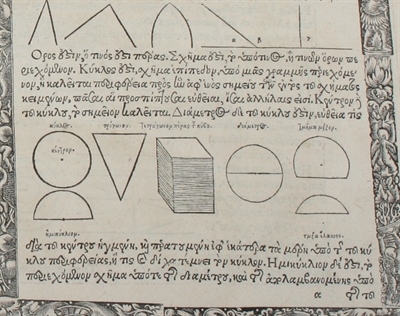 Ὅρος ἐστὶν, ὅ τινός ἐστι πέρας. Σχῆμά ἐστι, τὸ ὑπό τινος, ἤ τινων ὅρων πε
ριεχόμενον. Κύκλος ἐστὶ, σχῆμα ἐπίπεδον, ὑπὸ μιᾶς γραμμῆς περιεχόμε
νον, ἣ καλεῖται περιφέρεια, πρὸς ἣν ἀφ' ἑνὸς σημείου τῶν ἐντὸς τοῦ σχήματος
κειμένων, πᾶσαι αἱ προσπίπτουσαι εὐθεῖαι, ἴσαι ἀλλήλαις εἰσί. Κέντρον δὲ
τοῦ κύκλου, τὸ σημεῖον καλεῖται. Διάμετρος δὲ τοῦ κύκλου ἐστὶν, εὐθεῖά τις
κύκλος. τρίγωνον. διάμετρος. τμῆμα μεῖζον.
κέντρον.
ἡμικύκλιον.
διὰ τοῦ κέντρου ἠγμένη, καὶ περατουμένη ἐφ' ἑκάτερα τὰ μέρη ὑπὸ τῆς τοῦ κύ
κλου περιφερείας, ἥτις καὶ δίχα τέμνει τὸν κύκλον. Ἡμικύκλιον δέ ἐστι, τὸ
περιεχόμενον σχῆμα ὑπό τε τῆς διαμέτρου, καὶ τῆς ἀπολαμβανομένης ὑπὸ
α τῆς τοῦ